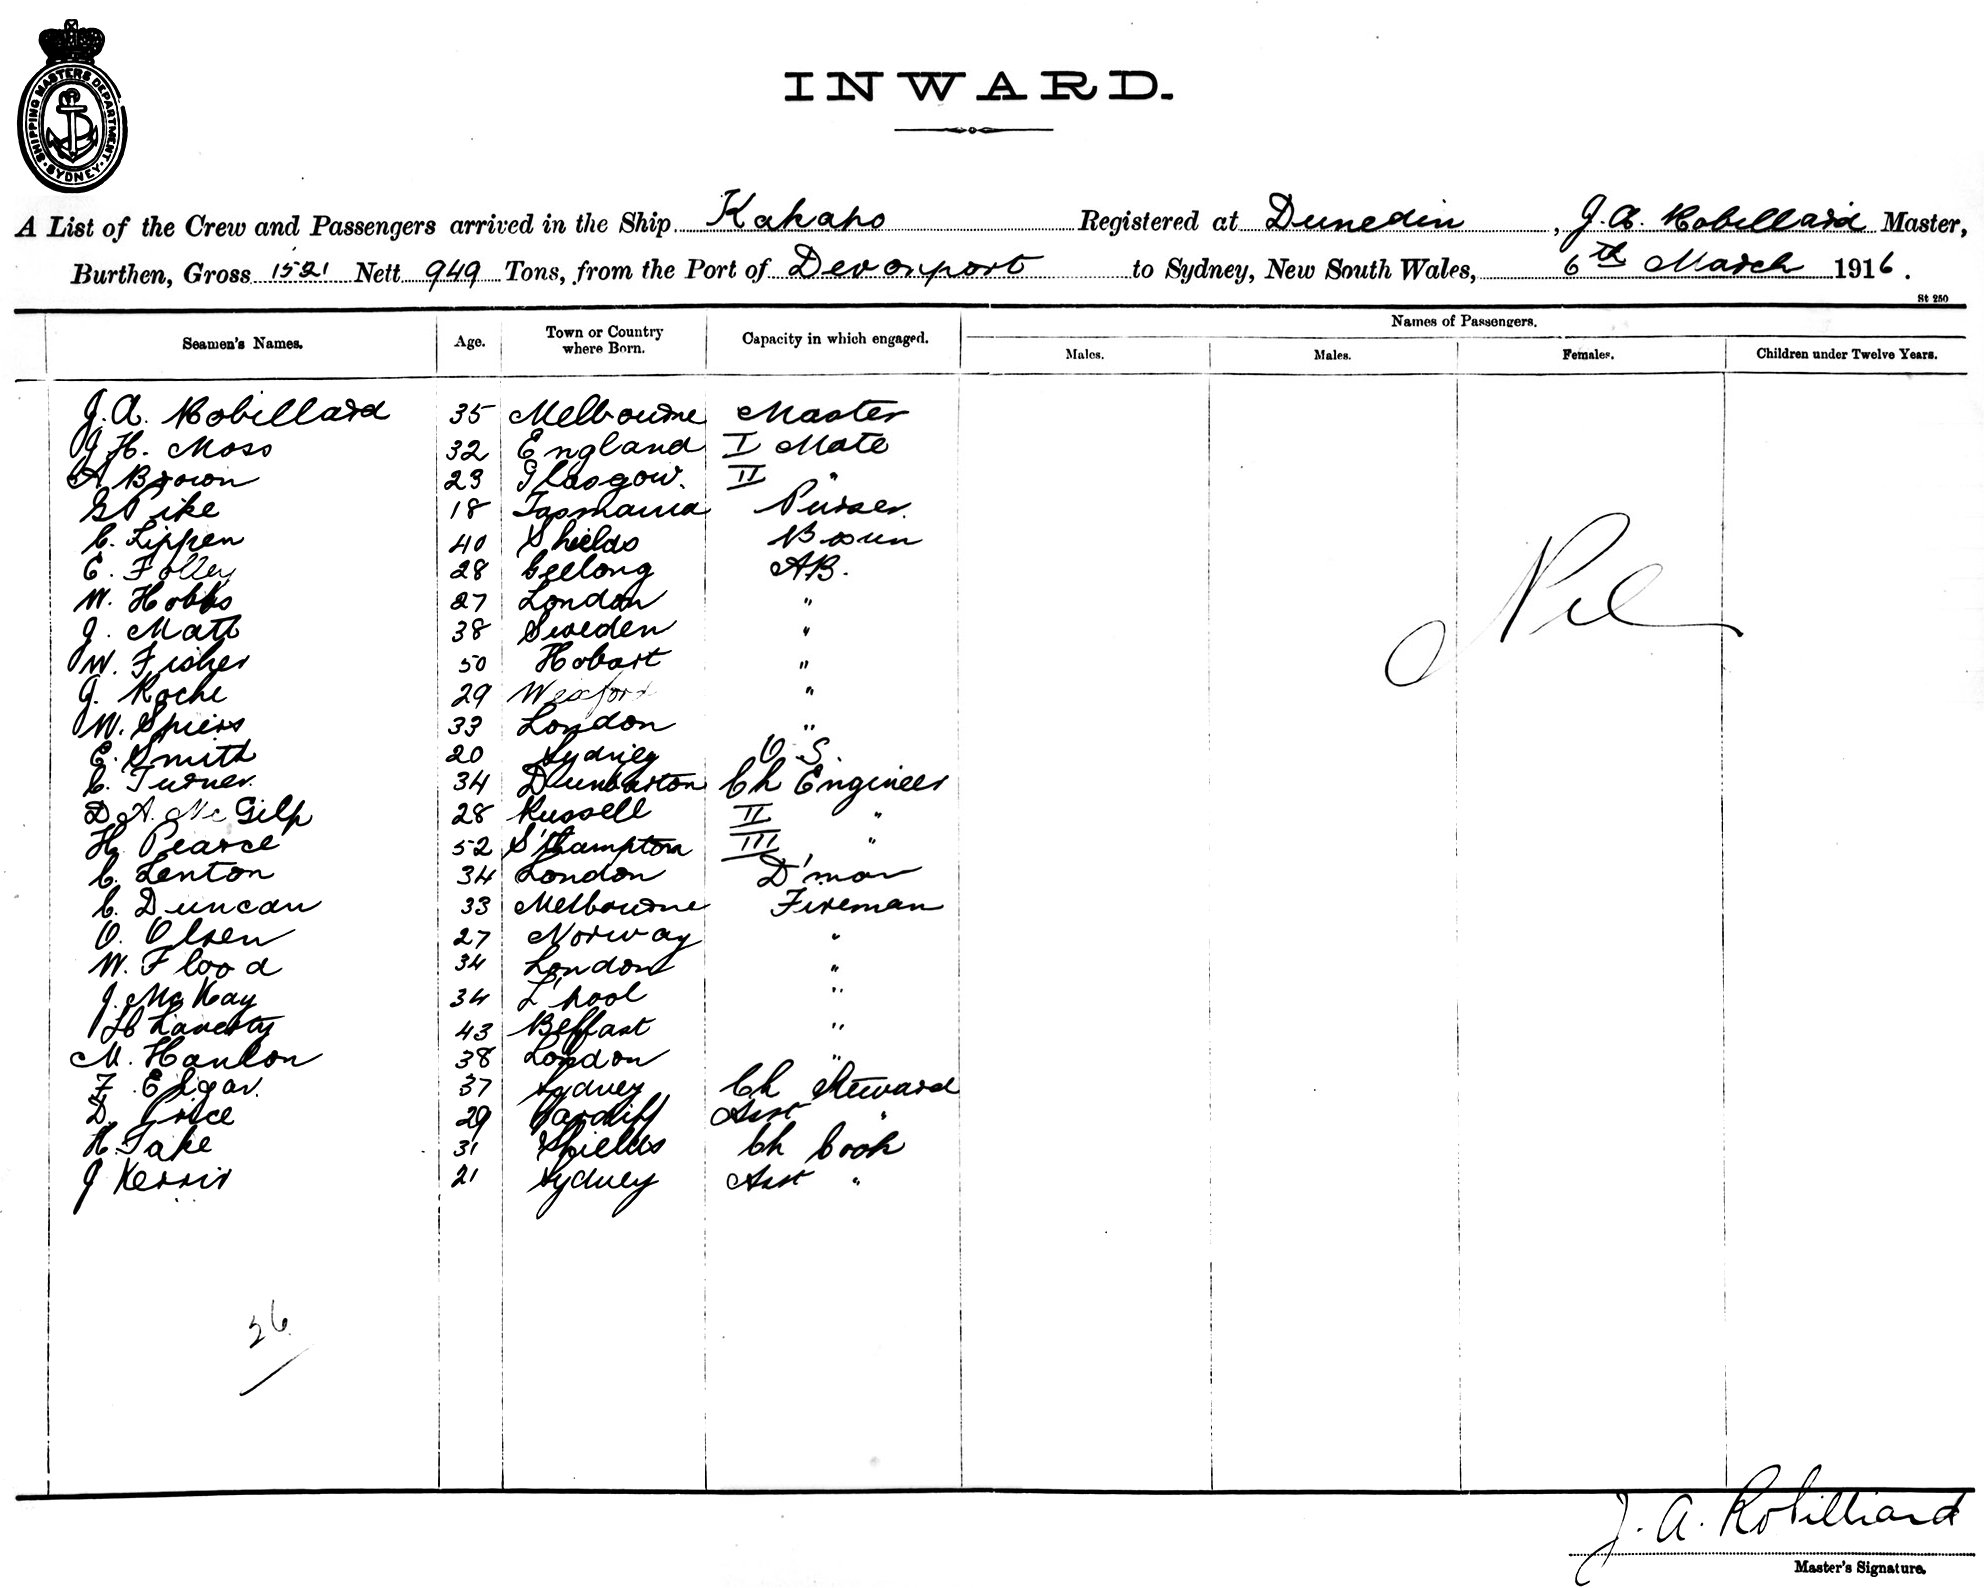 SHIPPING MASTERS DEPARTMENT · SYDNEY ·
INWARD.
A List of the Crew and Passengers arrived in the Ship Kakapo Registered at Dunedin, J. A. Robillard Master,
Burthen, Gross 1521 Nett 949 Tons, from the Port of Devonport to Sydney, New South Wales, 6th March 1916.
St 250
Seamen's Names. Age. Town or Country where Born. Capacity in which engaged. Names of Passengers.
Males. Males. Females. Children under Twelve Years.
J. A. Robillard 35 Melbourne Master
J H. Moss 32 England I Mate
A Brown 23 Glasgow. II "
G Pike 18 Tasmania Purser.
C. Lippen 40 Shields Bosun
E. Folley 28 Geelong AB.
W. Hobbs 27 London "
J. Matt 38 Sweden "
W. Fisher 50 Hobart "
J. Roche 29 Wexford "
W. Spiers 33 London "
E. Smith 20 Sydney O S.
C. Turner. 34 Dunbarton Ch Engineer
D. A. McGilp 28 Russell II "
H. Pearce 52 S'Hampton III "
C. Lenton 34 London D'man
C. Duncan 33 Melbourne Fireman
O. Olsen 27 Norway "
W. Flood 34 London "
J. McKay 34 L'pool "
Laverty 43 Belfast "
M. Hanlon 38 London "
F. Edgar. 37 Sydney Ch Steward
D. Price 29 Cardiff Asst "
H. Take 31 Shields Ch Cook
J Kerrir 21 Sydney Asst "
Nil
26
J. A. Robilliard
Master's Signature.